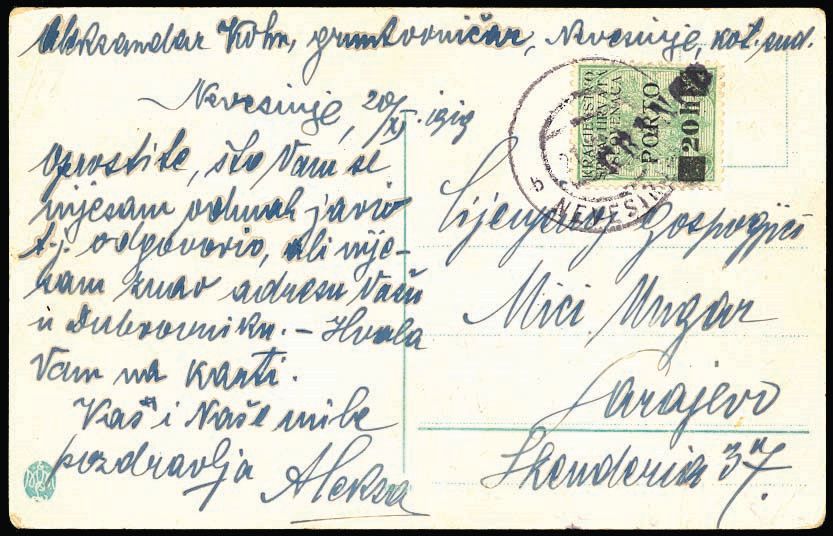 Aleksandar Kohn, gruntovničar, Nevesinje, kot. sud.
Nevesinje, 20/XI. 1919
Oprostite, što Vam se
nijesam odmah javio
t.j. odgovorio, ali nije-
sam znao adresu Vašu
u Dubrovniku. - Hvala
Vam na karti.
Vas i Naše mile
pozdravlja
Aleksa
KRALJEVSTVO
SLOVENACA
PORTO
20
NEVESINJE
b
Cijenjenoj Gospogjici
Mici Ungar
Sarajevo
Skenderia 37.